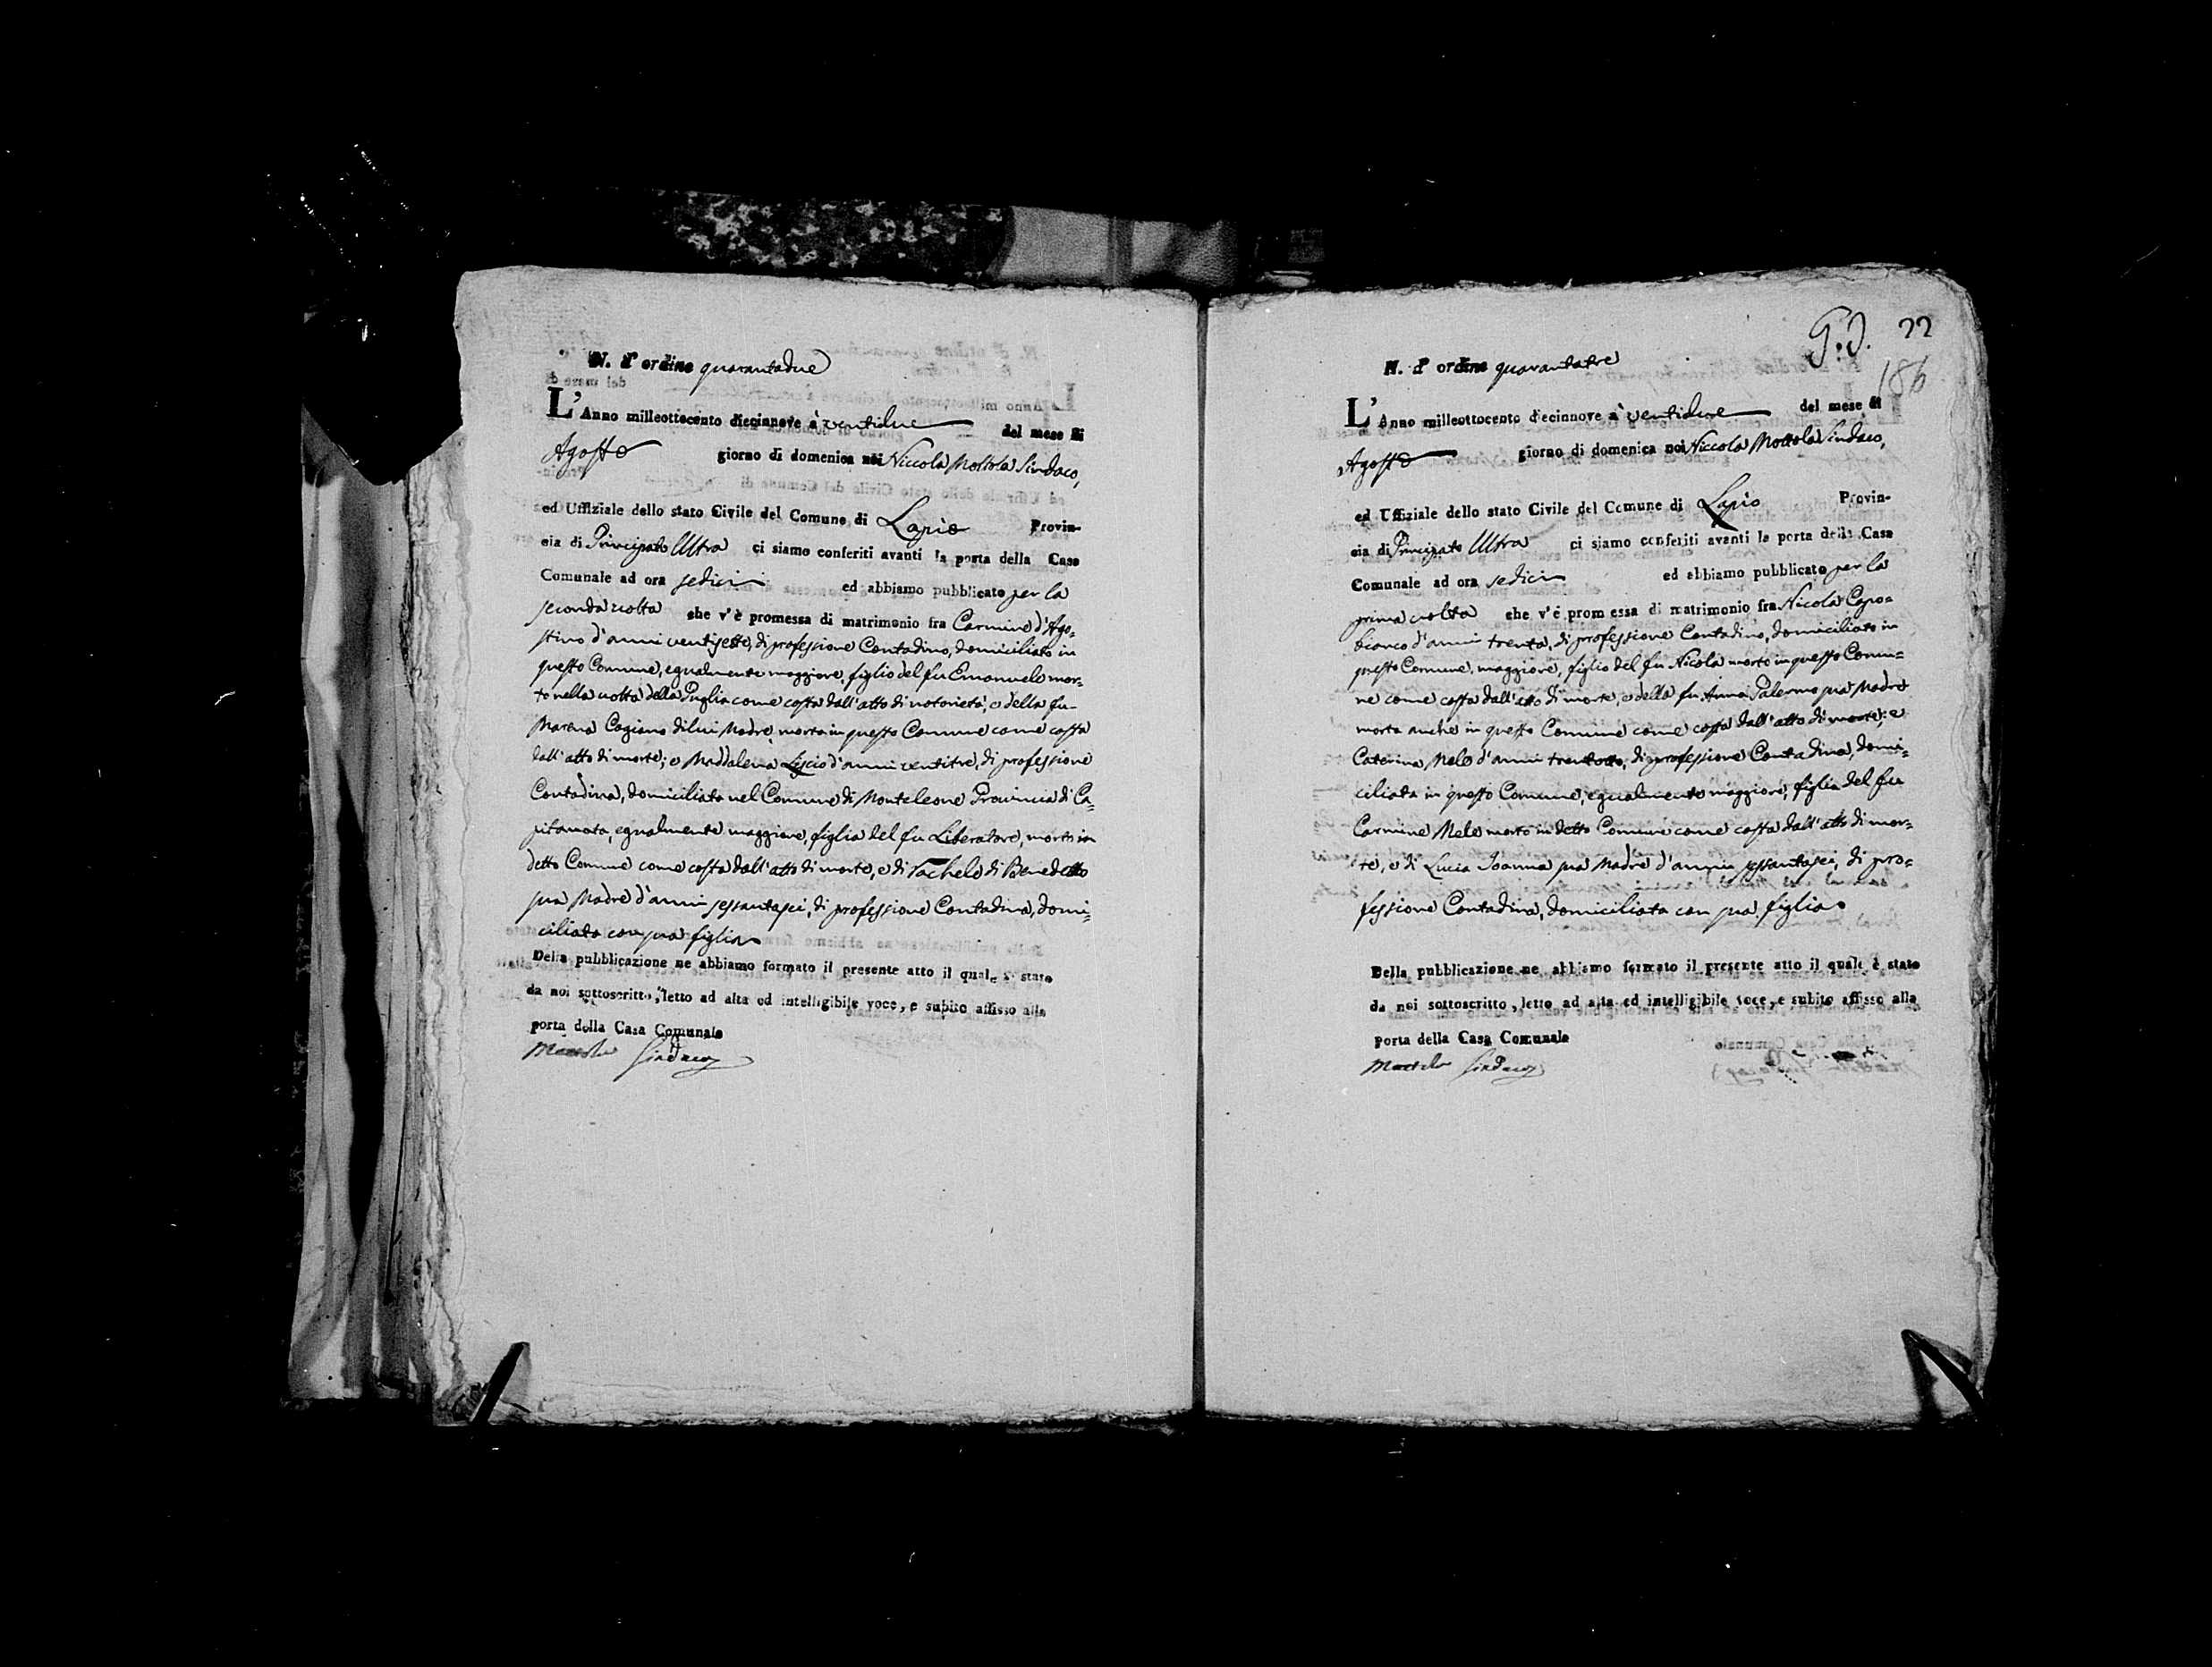 N. d'ordine quarantadue
L'Anno milleottocento diecinnove à ventidue del mese di
Agosto giorno di domenica noi Niccola Mottola Sindaco,
ed Uffiziale dello stato Civile del Comune di Lapio Provin-
cia di Principato Ultra ci siamo conferiti avanti la porta della Casa
Comunale ad ora sedici ed abbiamo pubblicato per la
seconda volta che v'è promessa di matrimonio fra Carmine d'Ago-
stino d'anni ventisette, di professione Contadino, domiciliato in
questo Comune, egualmente maggiore, figlio del fu Emanuele mor-
to nella volta della Puglia come costa dall'atto di notorietà, e della fu
Cogiano di lui Madre, morta in questo Comune come costa
dall'atto di morte; e Maddalena d'anni ventitre, di professione
Contadina, domiciliata nel Comune di Monteleone Provincia di Ca-
pitanata, egualmente maggiore, figlia del fu Liberatore, morto in
detto Comune come costa dall'atto di morte, e di Rachele di Benedetto
sua Madre d'anni sessantasei, di professione Contadina, domi-
ciliata con sua figlia
Della pubblicazione ne abbiamo formato il presente atto il quale è stato
da noi sottoscritto, letto ad alta ed intelligibile voce, e subito affisso alla
porta della Casa Comunale
Mottola Sindaco
22
186
N. d'ordine quarantatre
L'Anno milleottocento diecinnove à ventidue del mese di
Agosto giorno di domenica noi Niccola Mottola Sindaco,
ed Uffiziale dello stato Civile del Comune di Lapio Provin-
cia di Principato Ultra ci siamo conferiti avanti la porta della Casa
Comunale ad ora sedici ed abbiamo pubblicato per la
prima volta che v'é promessa di matrimonio fra Nicola Capo-
bianco d'anni trenta, di professione Contadino, domiciliato in
questo Comune, maggiore, figlio del fu Nicola morto in questo Comu-
ne come costa dall'atto di morte, e della fu Anna Palermo sua Madre
morta anche in questo Comune come costa dall'atto di morte; e
Caterina Mele d'anni trentotto, di professione Contadina, domi-
ciliata in questo Comune, egualmente maggiore, figlia del fu
Carmine Mele morto in detto Comune come costa dall'atto di mor-
te, e di Lucia Ioanna sua Madre d'anni sessantasei, di pro-
fessione Contadina, domiciliata con sua figlia.
Della pubblicazione ne abbiamo formato il presente atto il quale è stato
da noi sottoscritto, letto ad alta ed intelligibile voce, e subito affisso alla
porta della Casa Comunale
Mottola Sindaco